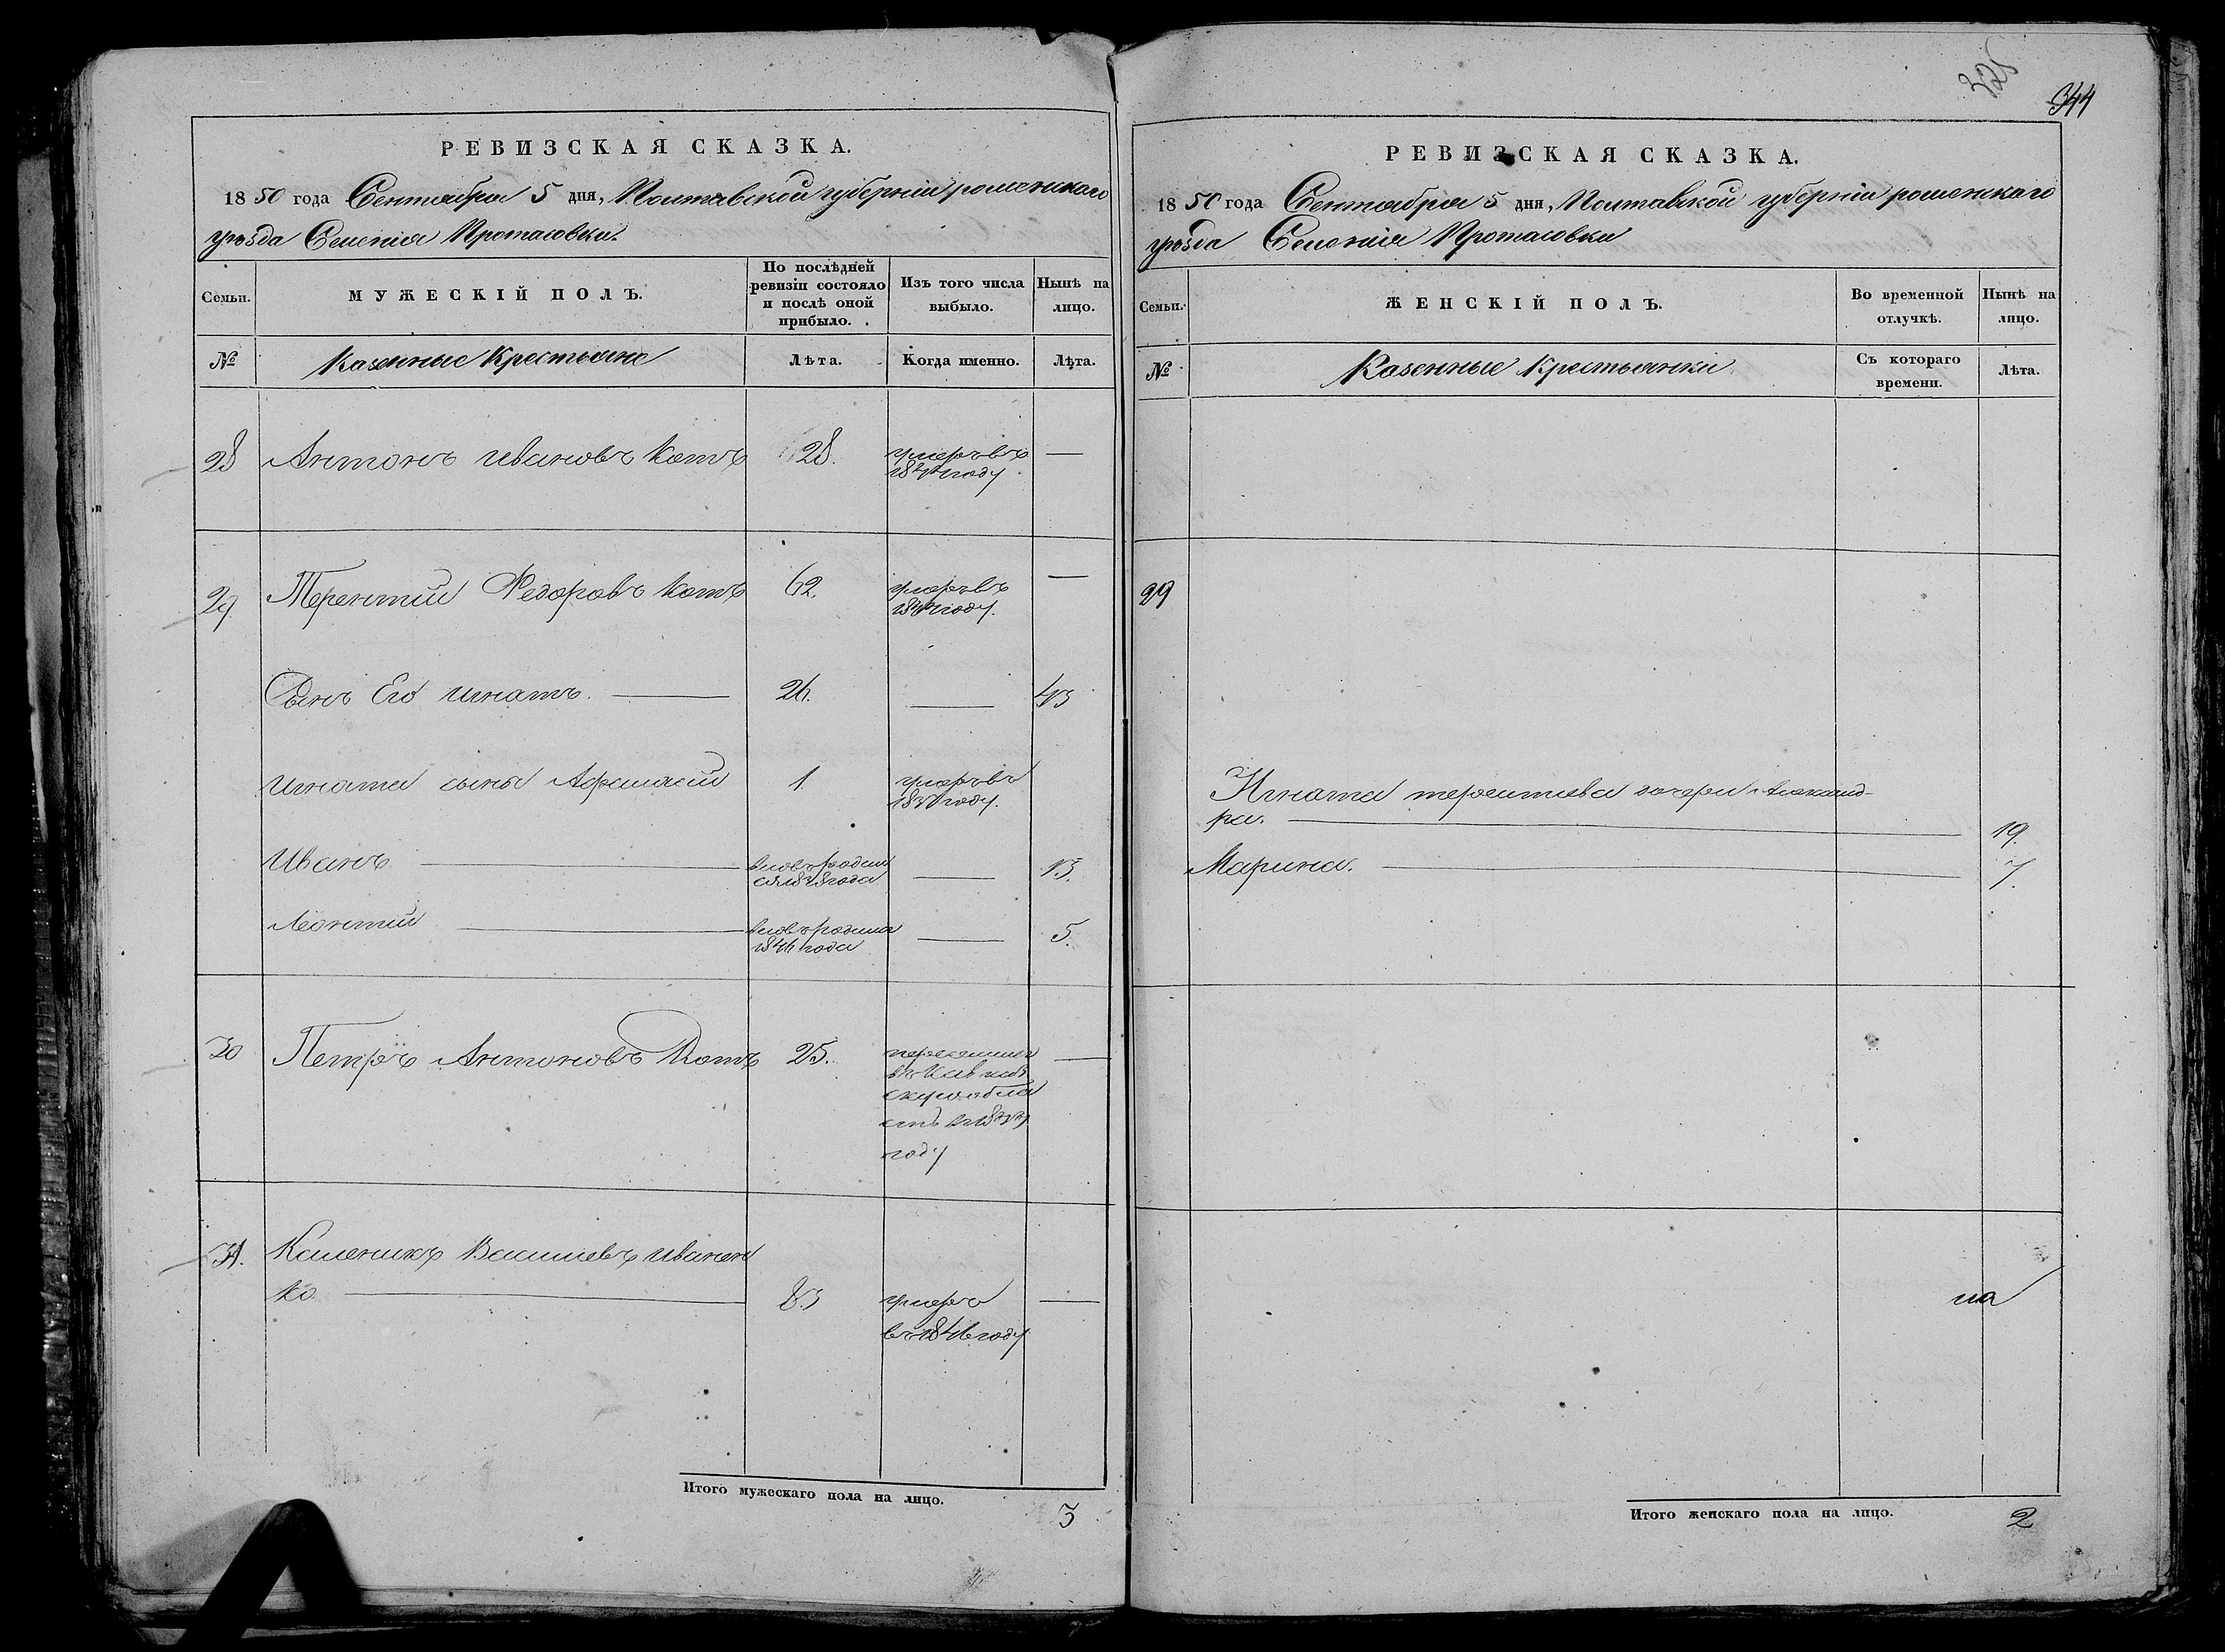 РЕВИЗСКАЯ СКАЗКА.
1850 года Сентября 5 дня, Полтавской губерніи роменскаго
уѣзда Селенія Протасовки.
Семьи.
МУЖЕСКІЙ ПОЛЪ.
По послѣдней ревизіи состояло и послѣ оной прибыло.
Изъ того числа выбыло.
Нынѣ на лицо.
№
Казенные Крестьяне
Лѣта.
Когда именно.
Лѣта.
28 Антонъ Ивановъ Котъ 28. умеръ въ —
году
29 Терентій Федоровъ Котъ 62. умеръ въ —
году.
Сынъ Его Игнатъ. — 26. — 43
Игната сыны Афанасій 1. умеръ въ
году.
Иванъ — вновь родил — 13.
ся 1838 года
Леонтій — вновь родился — 5.
года
30 Петръ Антоновъ Котъ 25. переселился —
въ Кавказ
скую обла
сть въ
году
31. Каленикъ Васильевъ Иванен
ко. — 83 умеръ —
въ 1846 году
Итого мужескаго пола на лицо.
3
328
344
РЕВИЗСКАЯ СКАЗКА.
1850 года Сентября 5 дня, Полтавской губерніи роменскаго
уѣзда Селенія Протасовки
Семьи.
ЖЕНСКІЙ ПОЛЪ.
Во временной отлучкѣ.
Нынѣ на лицо.
№
Казенные Крестьянки
Съ котораго времени.
Лѣта.
29
Игната терентиева дочери Александ-
ра. — 19.
Марина. — 7.
Итого женскаго пола на лицо.
2